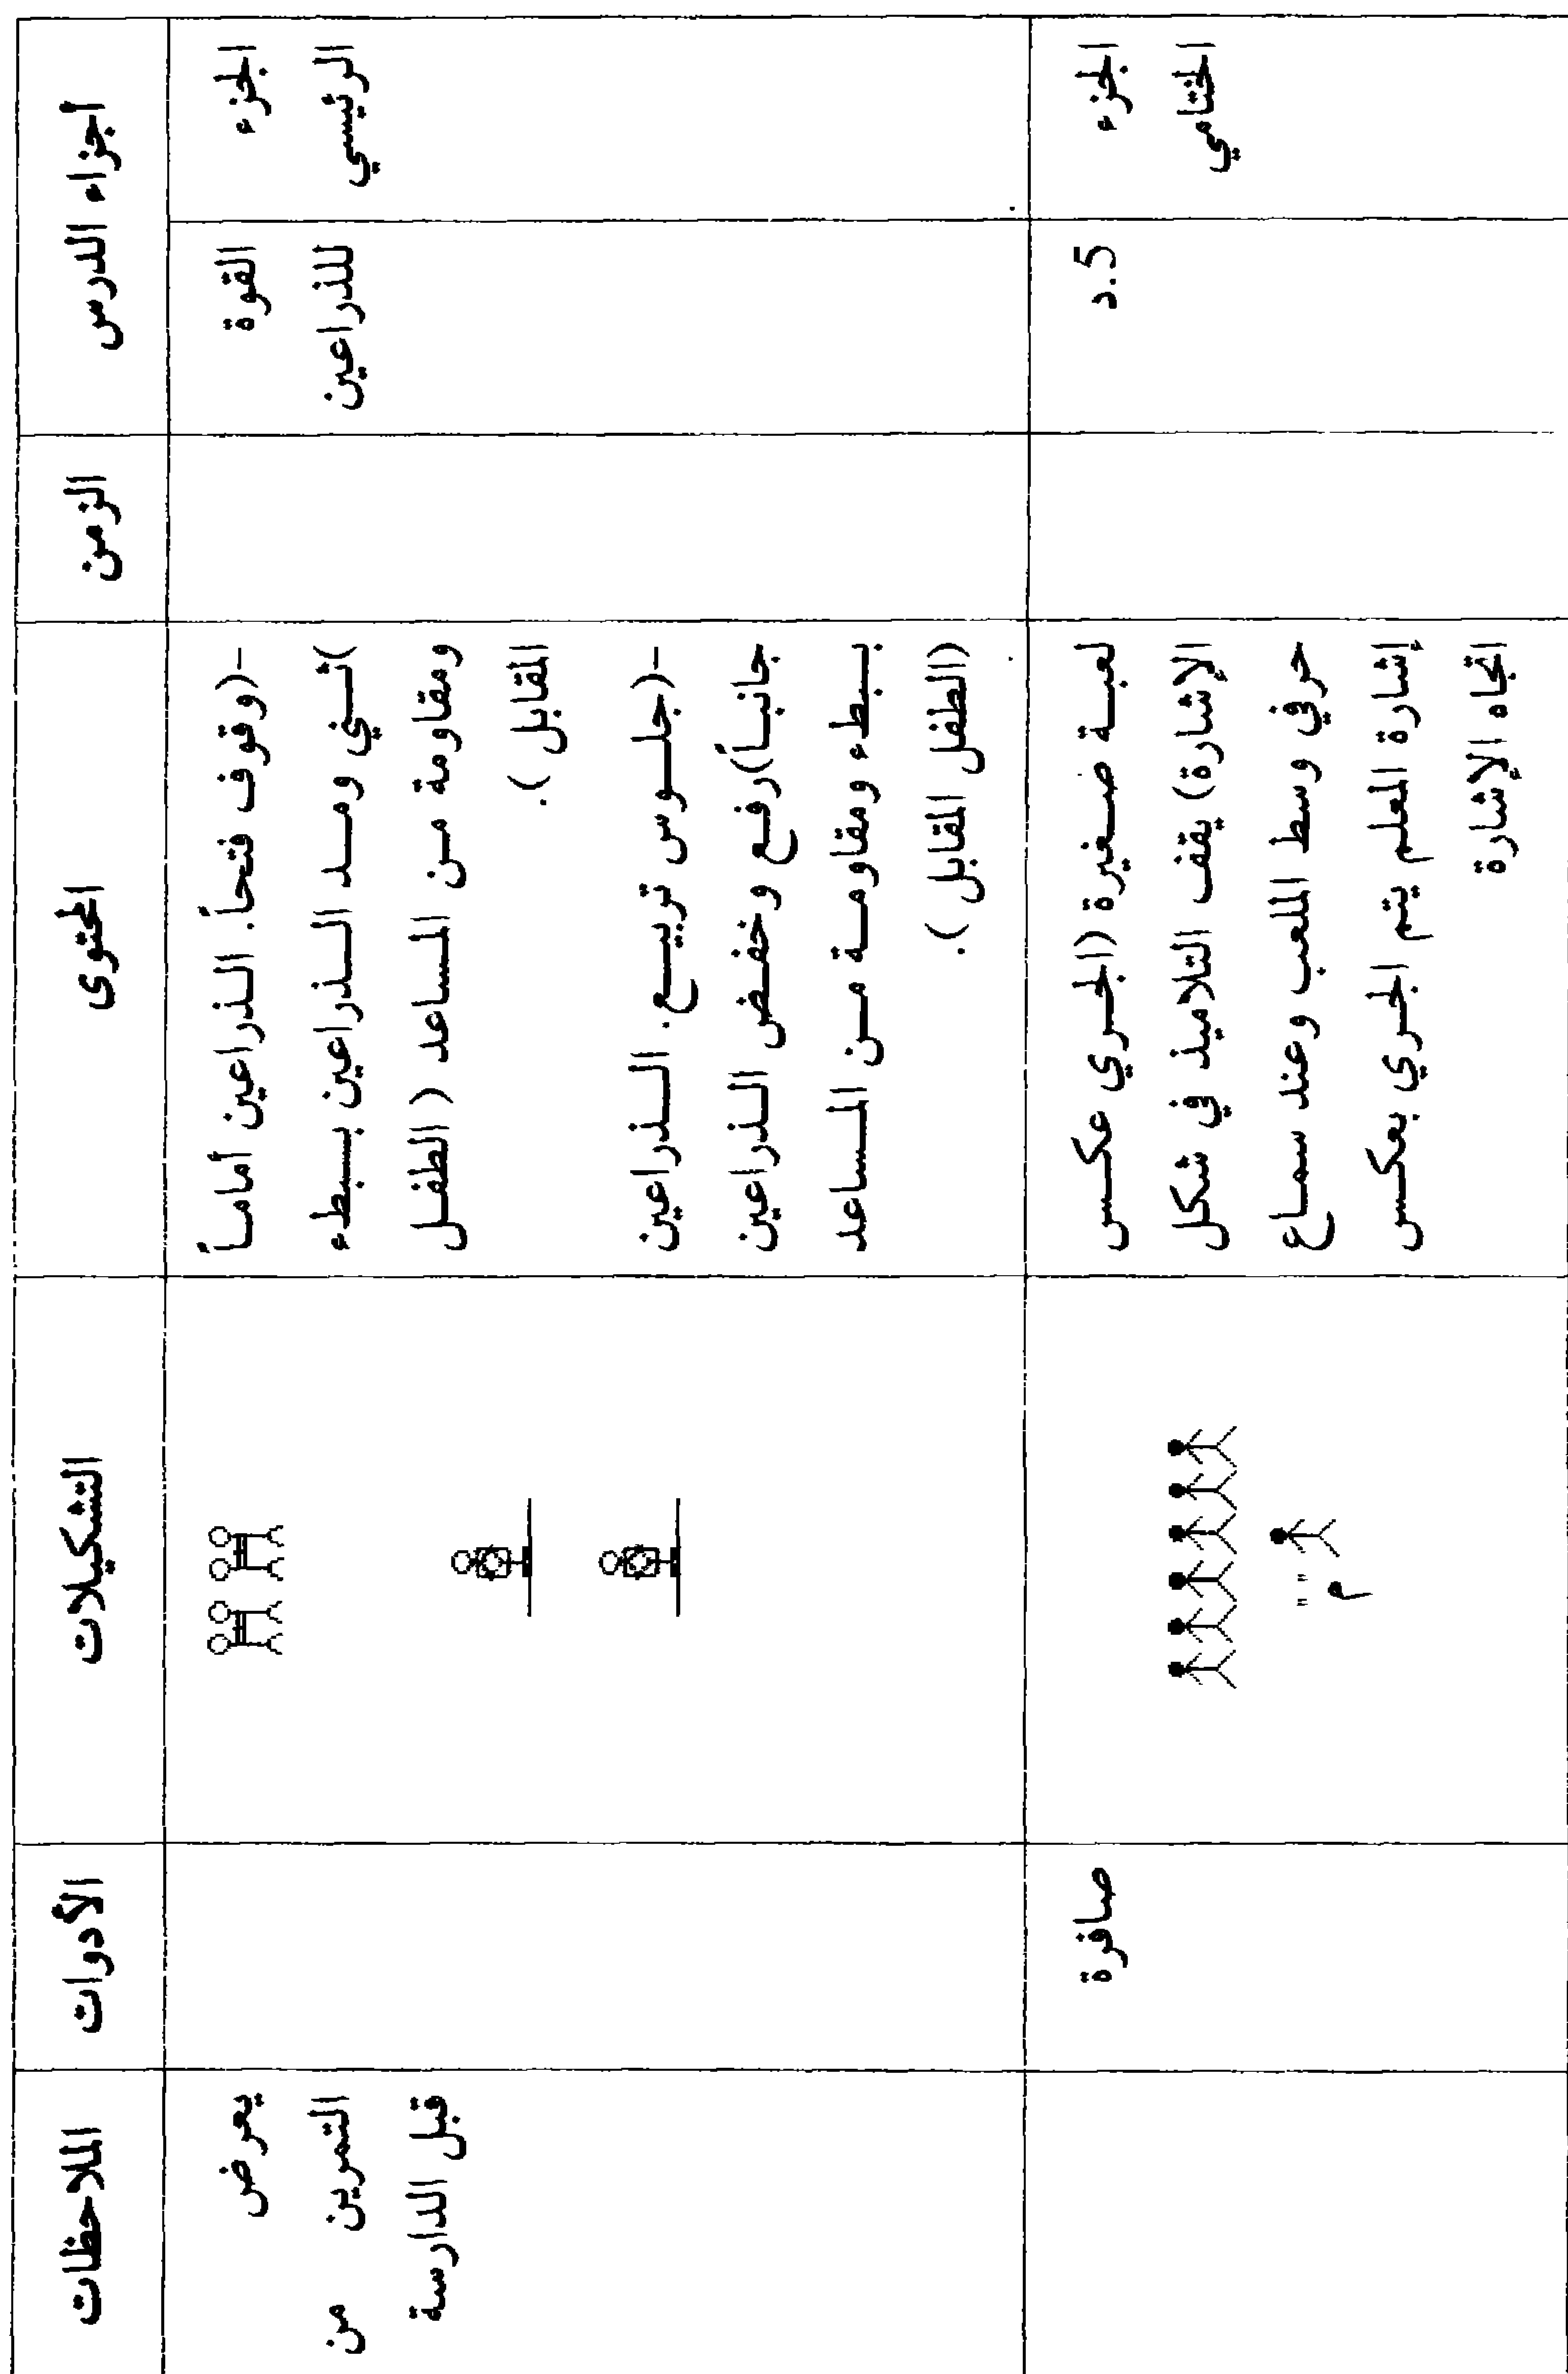 أجزاء الدرس
الزمن
المحتوى
التشكيلات
الأدوات
الملاحظات
الجزء
الرئيسي
القوة
للذراعين
-(وقوف فتحاً. الذراعين أماماً
)ثني ومد الذراعين ببطء
ومقاومة من المساعد (الطفل
المقابل ).
-(جلوس تربيع. الذراعين
جانباً)رفع وخفض الذراعين
ببطء ومقاومة من المساعد
(الطفل المقابل ).
يعرض
التمرين من
قبل الدارسة
الجزء
الختامي
5.د
لعبة صغيرة (الجري عكس
الإشارة) يقف التلاميذ في شكل
حرفي وسط الملعب وعند سماع
إشارة المعلم يتم الجري بعكس
اتجاه الإشارة
" "
م
صافرة